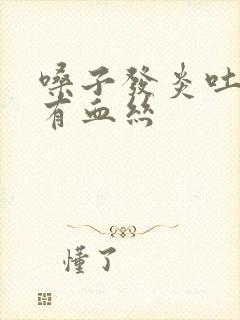 嗓子發炎吐
有血絲
懂了